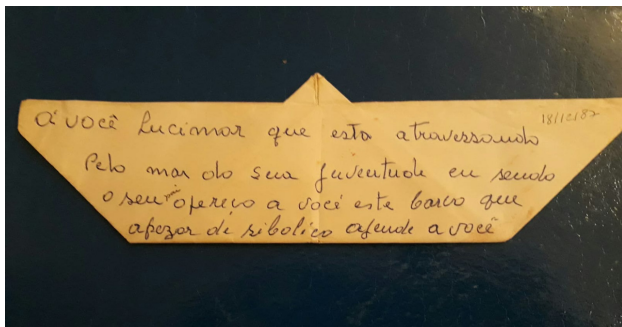 á você Lucimar que esta atravessando
18/12/87
Pelo mar da sua juventude eu sendo
o seu ofereço a você este barco que
apezar di sibolico ajude a você